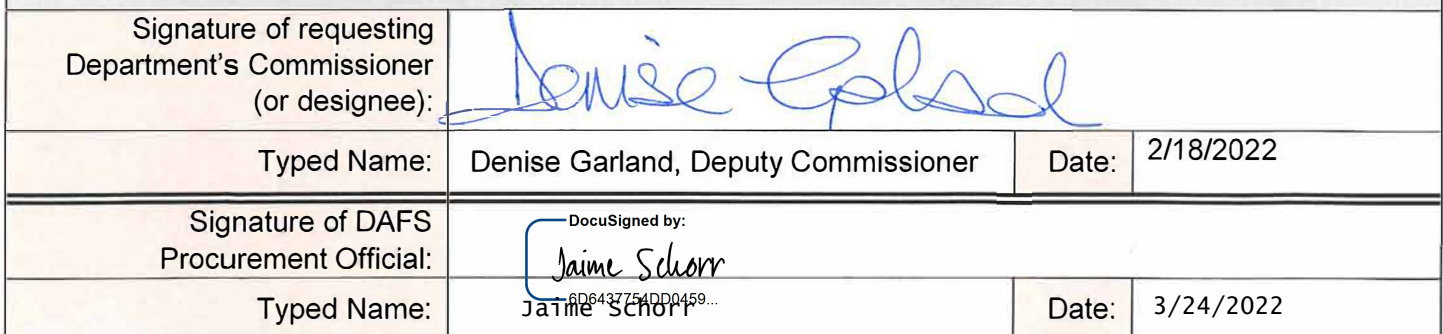 Signature of requesting
Department's Commissioner
(or designee):
Denise Garland
Typed Name: Denise Garland, Deputy Commissioner Date: 2/18/2022
Signature of DAFS
Procurement Official:
DocuSigned by:
Jaime Schorr
6D6437754DD0459...
Typed Name: Jaime Schorr Date: 3/24/2022